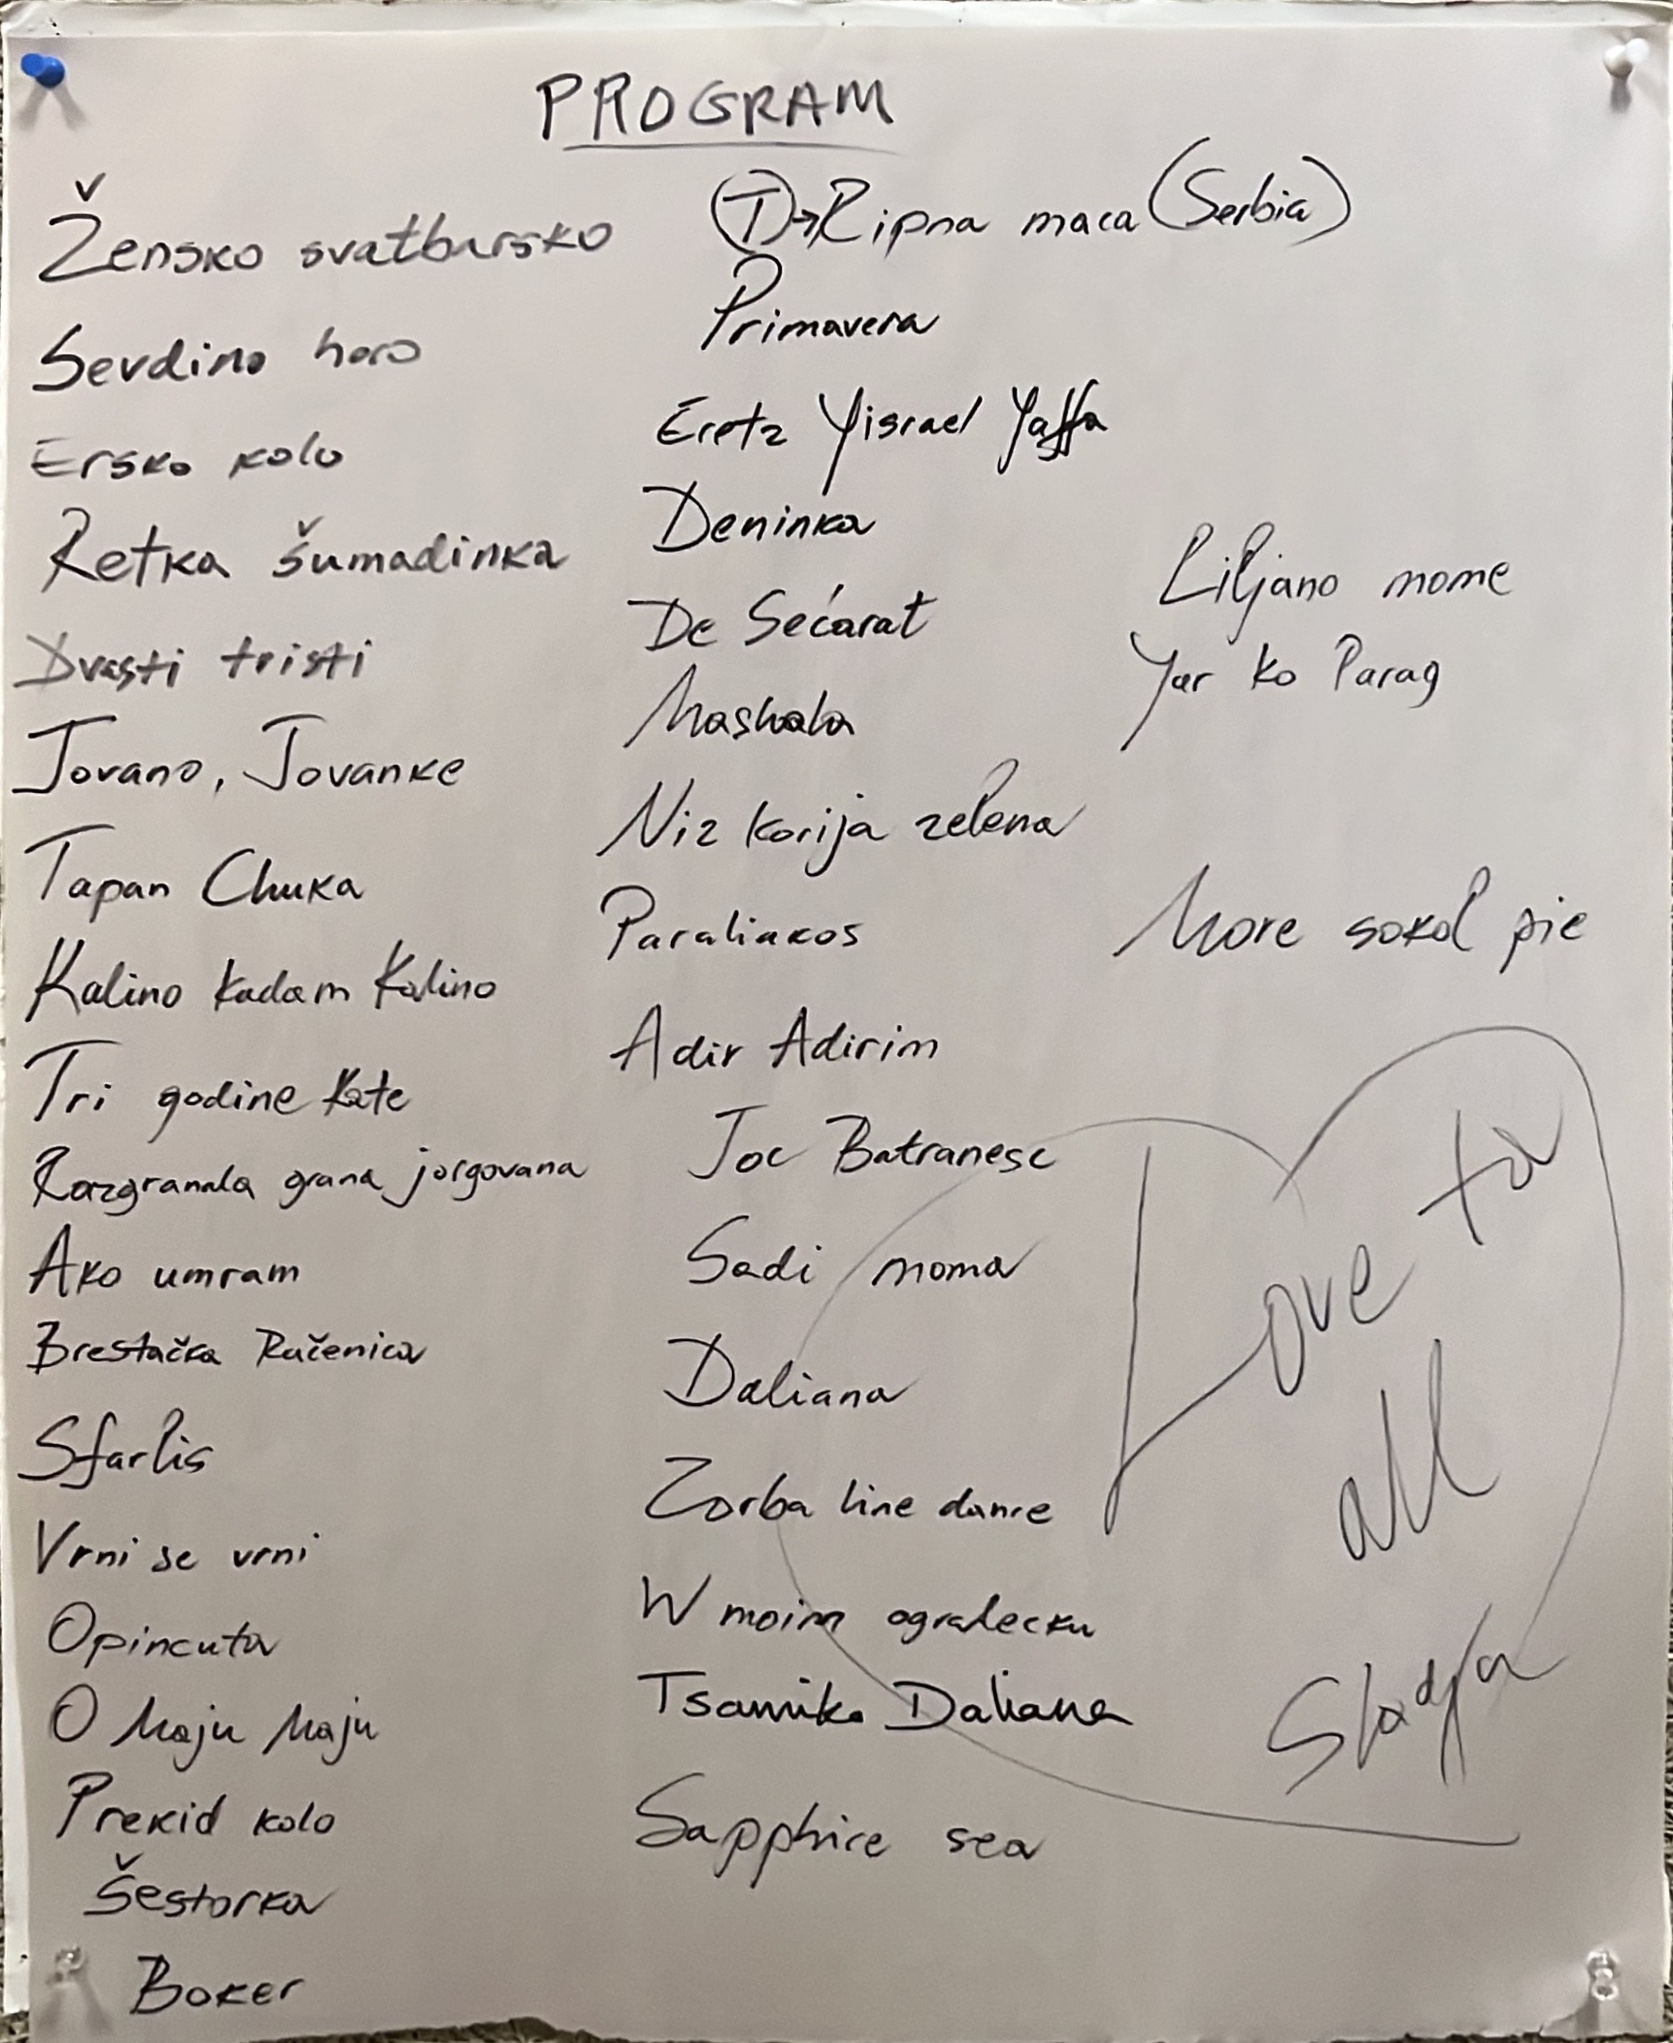 PROGRAM
Žensko svatbarsko
Sevdino horo
Ersko kolo
Retka šumadinka
Dvasti tristi
Jovano, Jovanke
Tapan Chuka
Kalino Kadam Kalino
Tri godine Kate
Razgranala grana jorgovana
Ako umram
Brestačka Račenica
Sfarlis
Vrni se vrni
Opincuta
O Maju Maju
Prekid kolo
Šestorka
Boker
T→Ripna maca (Serbia)
Primavera
Eretz Yisrael Yaffa
Deninka
De Sećarat
Mashala
Niz Korija zelena
Paraliakos
Adir Adirim
Joc Batranesc
Sadi moma
Daliana
Zorba line dance
W moim ogradecku
Tsamiko Daliana
Sapphire sea
Liljano mome
Yar ko Parag
More sokol pie
Love to
all
Sladja